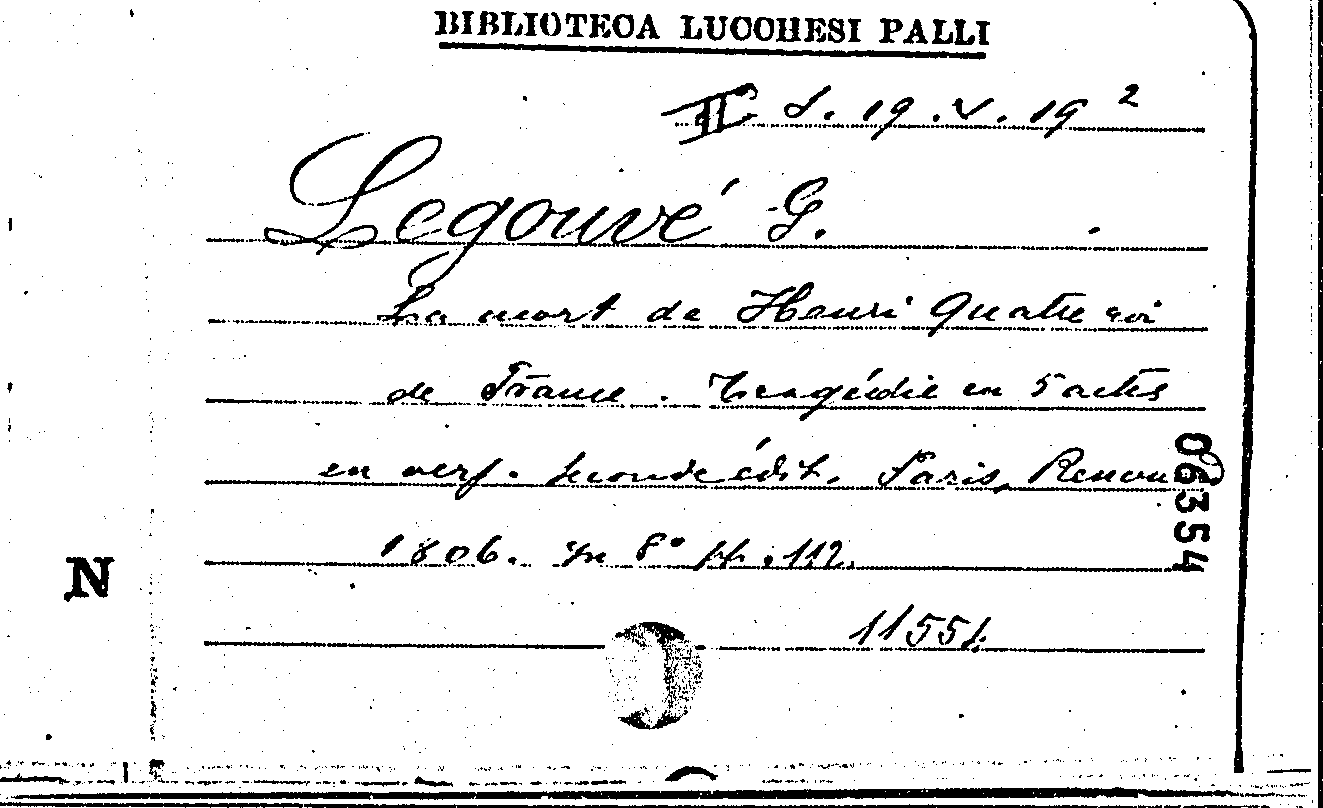 BIBLIOTECA LUCCHESI PALLI
II S. 19. V. 19 2
Legouvé G.
La mort de Henri Quatre roi
de France. Tragédie en 5 actes
en vers. Seconde édit. Paris, Renou
1806. In 8° pp. 112.
11551.
06354
N